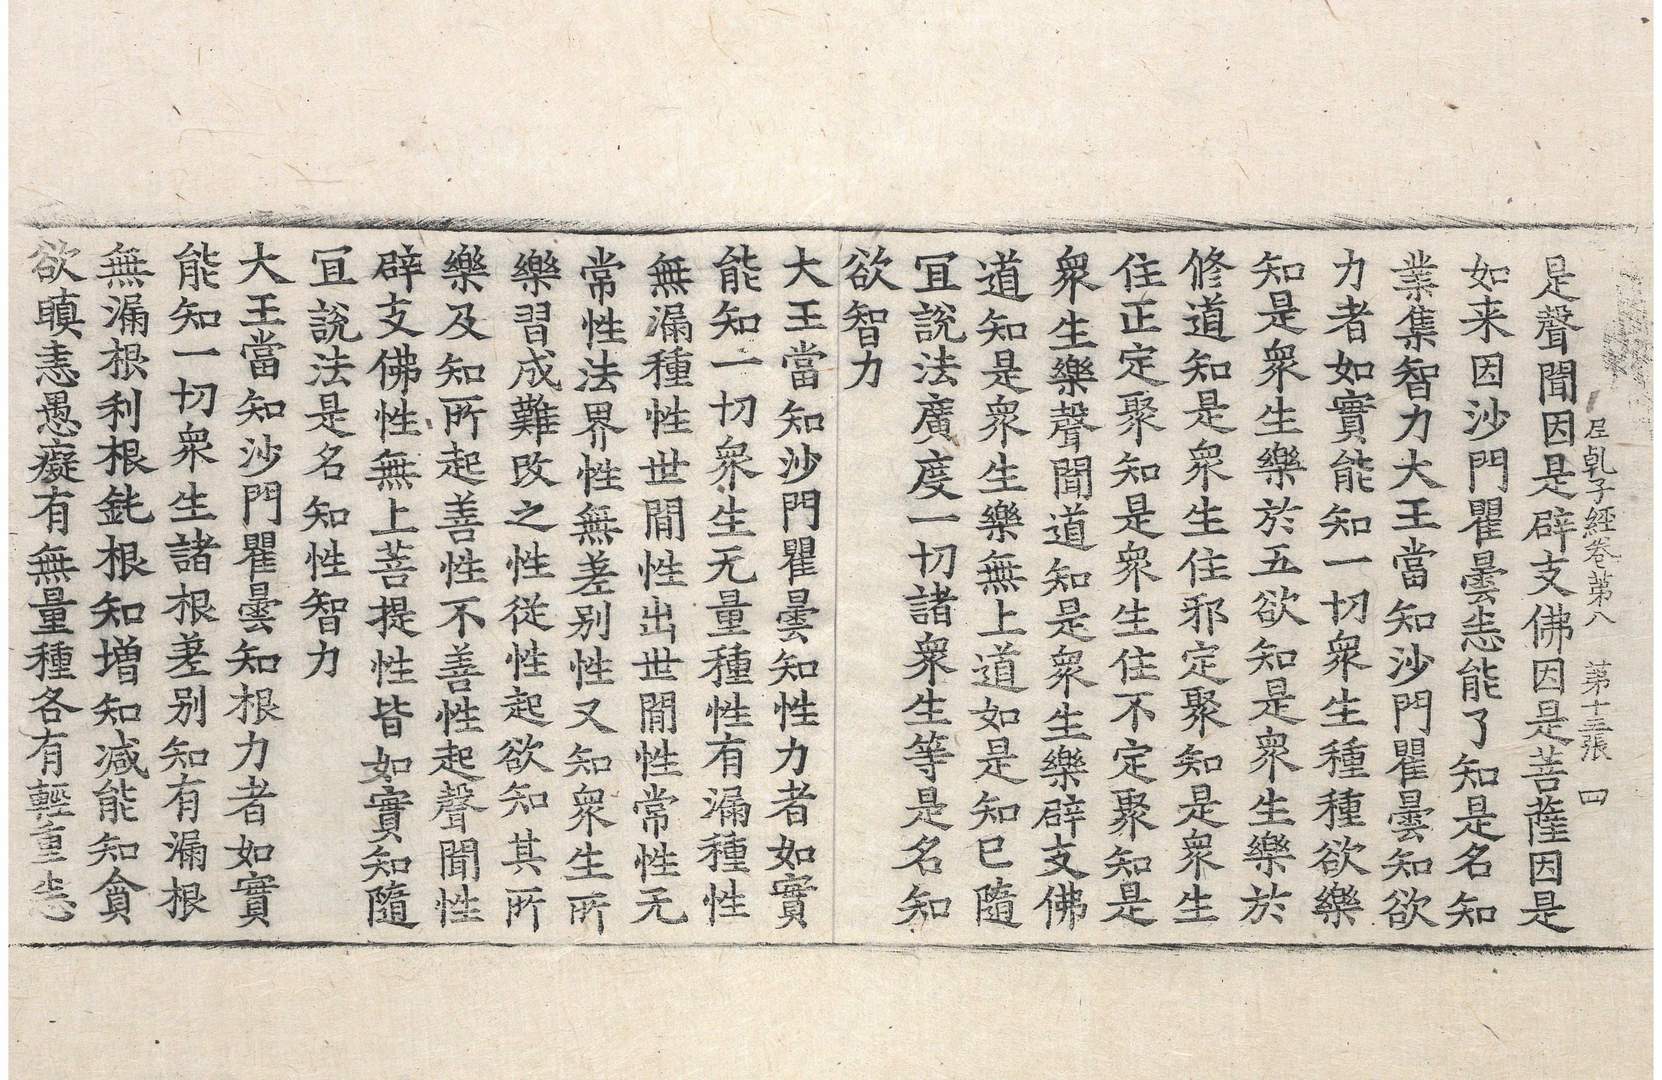 㞐乹子經卷第八　第十三張　四
是聲聞因是辟支佛因是菩薩因是
如来因沙門瞿曇悉能了知是名知
業集智力大王當知沙門瞿曇知欲
力者如實能知一切衆生種種欲樂
知是衆生樂於五欲知是衆生樂於
修道知是衆生住邪定聚知是衆生
住正定聚知是衆生住不定聚知是
衆生樂聲聞道知是衆生樂辟支佛
道知是衆生樂無上道如是知已隨
冝說法廣度一切諸衆生等是名知
欲智力
大王當知沙門瞿曇知性力者如實
能知一切衆生无量種性有漏種性
無漏種性世間性出世間性常性无
常性法界性無差别性又知衆生所
樂習成難改之性從性起欲知其所
樂及知所起善性不善性起聲聞性
辟支佛性無上菩提性皆如實知隨
冝說法是名知性智力
大王當知沙門瞿曇知根力者如實
能知一切衆生諸根差别知有漏根
無漏根利根鈍根知增知减能知貪
欲瞋恚愚癡有無量種各有輕重悉